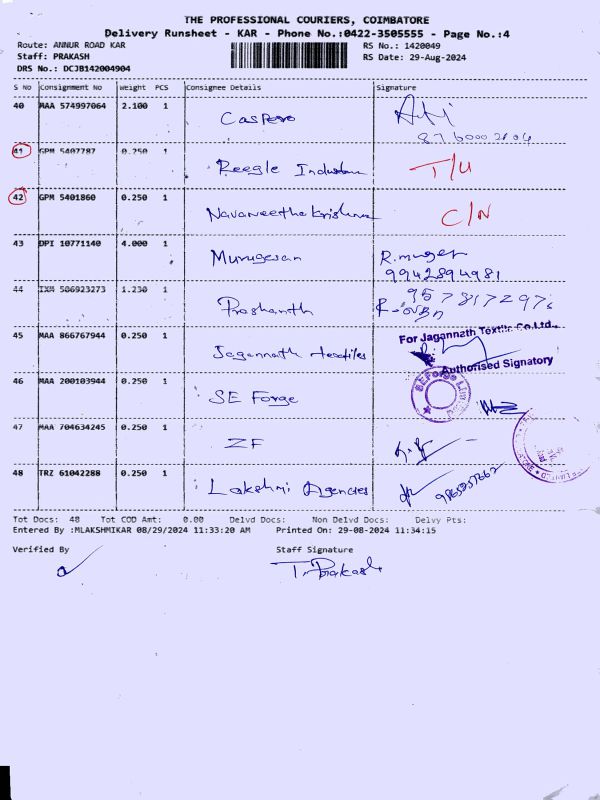 THE PROFESSIONAL COURIERS, COIMBATORE
Delivery Runsheet - KAR - Phone No.:0422-3505555 - Page No.:4
Route: ANNUR ROAD KAR RS No.: 1420049
Staff: PRAKASH RS Date: 29-Aug-2024
DRS No.: DCJB142004904
S No Consignment No Weight PCS Consignee Details Signature
40 MAA 574997064 2.100 1 Caspero
41 GPM 5407787 0.250 1 Reegle T/U
42 GPM 5401860 0.250 1 Navaneetha Krishna C/N
43 DPI 10771140 4.000 1 Murugesan R.muges
9942894981
44 IXM 506923273 1.230 1 Prashanth
45 MAA 866767944 0.250 1 Jagannath textiles For Jagannath Textile Co.Ltd.,
Authorised Signatory
46 MAA 200103944 0.250 1 SE Forge
47 MAA 704634245 0.250 1 ZF
48 TRZ 61042288 0.250 1 Lakshmi Agencies
Tot Docs: 48 Tot COD Amt: 0.00 Delvd Docs: Non Delvd Docs: Delvy Pts:
Entered By :MLAKSHMIKAR 08/29/2024 11:33:20 AM Printed On: 29-08-2024 11:34:15
Verified By Staff Signature
T. Prakash